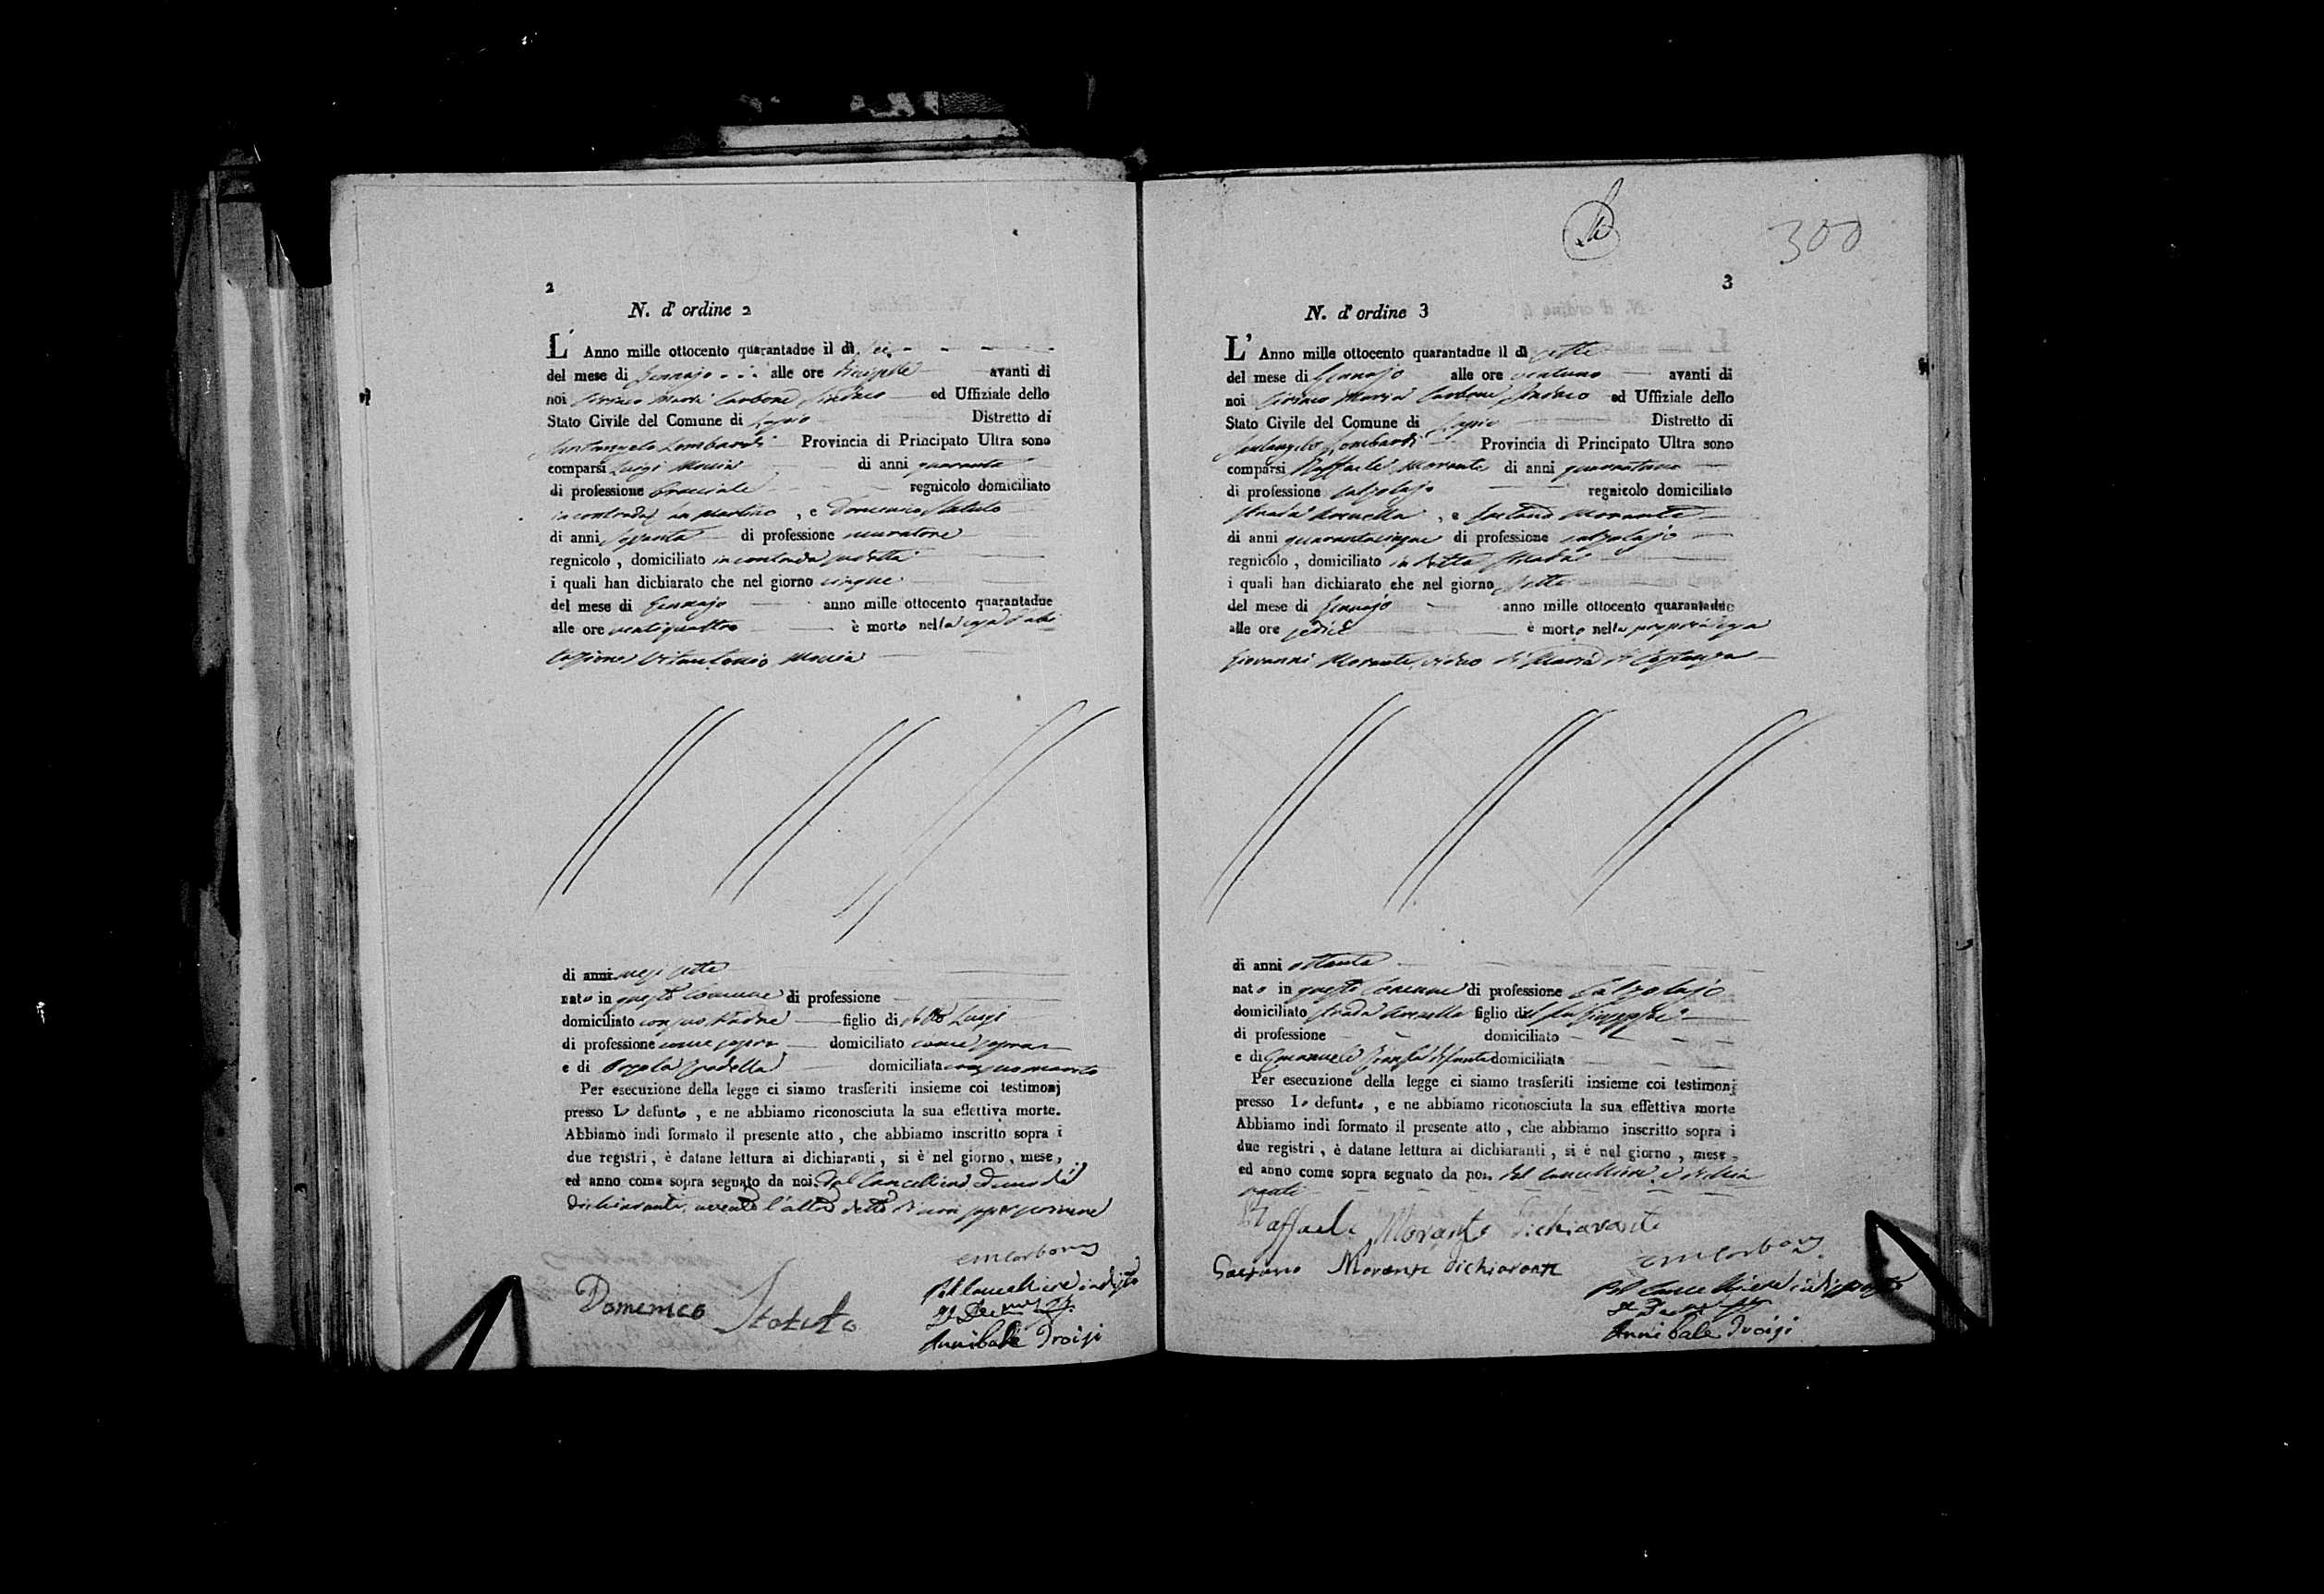 2
N. d' ordine 2
L' Anno mille ottocento quarantadue il dì sei
del mese di Gennajo alle ore avanti di
noi Ciriaco Maria Carbone Sindaco ed Uffiziale dello
Stato Civile del Comune di Lapio Distretto di
Santangelo Lombardi Provincia di Principato Ultra sono
comparsi Luigi di anni quaranta
di professione bracciale regnicolo domiciliato
in contrada San Martino , e Domenico Statuto
di anni di professione muratore
regnicolo , domiciliato in contrada suddetta
i quali han dichiarato che nel giorno cinque
del mese di Gennajo anno mille ottocento quarantadue
alle ore ventiquattro è morto nella casa d'abi
tazione Vitantonio
di anni mesi sette
nato in questo Comune di professione
domiciliato con suo Padre figlio di detto Luigi
di professione come sopra domiciliato come sopra
e di domiciliata con suo marito
Per esecuzione della legge ci siamo trasferiti insieme coi testimonj
presso Lo defunto , e ne abbiamo riconosciuta la sua effettiva morte.
Abbiamo indi formato il presente atto , che abbiamo inscritto sopra i
due registri , è datane lettura ai dichiaranti , si è nel giorno , mese ,
ed anno come sopra segnato da noi dal Cancelliere e uno dei
dichiaranti, avendo l'altro detto di non saper scrivere
CMCarbone
Domenico Statuto
Pel Cancelliere indisposto
Annibale Troisi
300
3
N. d' ordine 3
L' Anno mille ottocento quarantadue il dì sette
del mese di Gennajo alle ore ventuno avanti di
noi Ciriaco Maria Carbone Sindaco ed Uffiziale dello
Stato Civile del Comune di Lapio Distretto di
Santangelo Lombardi Provincia di Principato Ultra sono
comparsi Raffaele Morante di anni quarantuno
di professione calzolajo regnicolo domiciliato
strada , e Gaetano Morante
di anni quarantacinque di professione calzolajo
regnicolo , domiciliato in detta strada
i quali han dichiarato che nel giorno sette
del mese di Gennajo anno mille ottocento quarantadue
alle ore sedici è morto nella propria casa
Giovanni Morante, viduo di Maria di Costanza
di anni ottanta
nato in questo Comune di professione Calzolajo
domiciliato strada figlio del fu Giuseppe
di professione domiciliato
e di Emanuela defunta domiciliata
Per esecuzione della legge ci siamo trasferiti insieme coi testimonj
presso Lo defunto , e ne abbiamo riconosciuta la sua effettiva morte
Abbiamo indi formato il presente atto , che abbiamo inscritto sopra i
due registri , è datane lettura ai dichiaranti , si è nel giorno , mese ,
ed anno come sopra segnato da noi dal Cancelliere, e dichia
ranti
Raffaele Morante dichiarante
Gaetano Morante dichiarante
CMCarbone
Pel Cancelliere indisposto
Annibale Troisi